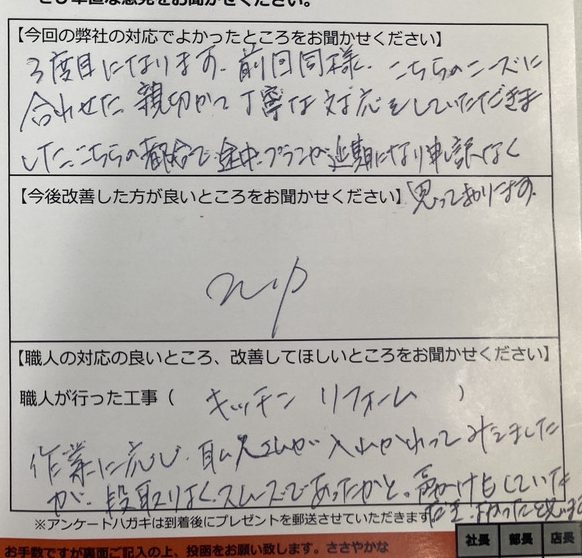 ぜひ率直な意見をお聞かせください。
【今回の弊社の対応でよかったところをお聞かせください】
3度目になります。前回同様、こちらのニーズに
合わせた親切かつ丁寧な対応をしていただきま
した。こちらの都合で途中プランが延期になり申し訳なく
【今後改善した方が良いところをお聞かせください】思っております。
【職人の対応の良いところ、改善してほしいところをお聞かせください】
職人が行った工事（ キッチン リフォーム ）
作業に応じ、職人さんが入れかわってみえました
が、段取りよくスムーズであったかと。声かけもしていただ
※アンケートハガキは到着後にプレゼントを郵送させていただきます
社長 部長 店長
お手数ですが裏面ご記入の上、投函をお願い致します。ささやかな